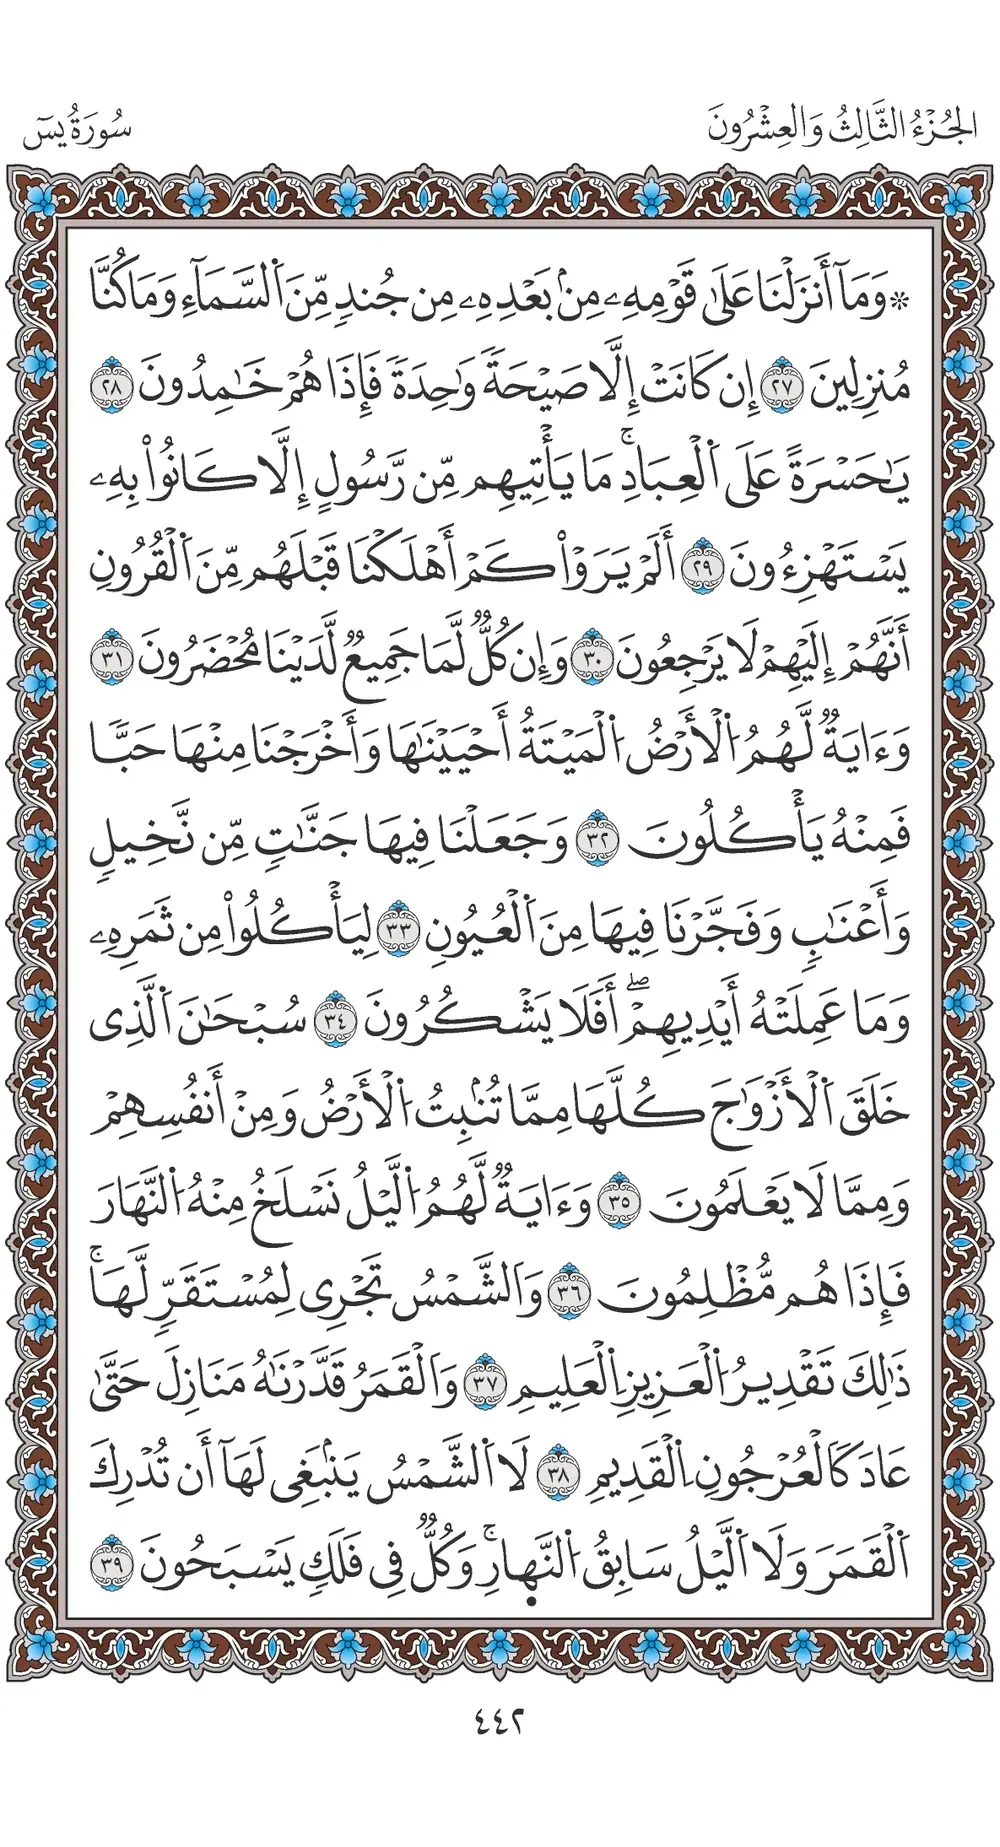 الجُزْءُ الثَّالِثُ وَالعِشْرُونَ
سُورَةُ يسٓ
* وَمَآ أَنزَلْنَا عَلَىٰ قَوْمِهِۦ مِنۢ بَعْدِهِۦ مِن جُندٖ مِّنَ اَ۬لسَّمَآءِ وَمَا كُنَّا
مُنزِلِينَ ٢٧ إِن كَانَتْ إِلَّا صَيْحَةٗ وَٰحِدَةٗ فَإِذَا هُمْ خَٰمِدُونَ ٢٨
يَٰحَسْرَةً عَلَى اَ۬لْعِبَادِۚ مَا يَأْتِيهِم مِّن رَّسُولٍ إِلَّا كَانُواْ بِهِۦ
يَسْتَهْزِءُونَ ٢٩ أَلَمْ يَرَوْاْ كَمْ أَهْلَكْنَا قَبْلَهُم مِّنَ اَ۬لْقُرُونِ
أَنَّهُمْ إِلَيْهِمْ لَا يَرْجِعُونَ ٣٠ وَإِن كُلّٞ لَّمَا جَمِيعٞ لَّدَيْنَا مُحْضَرُونَ ٣١
وَءَايَةٞ لَّهُمُ اُ۬لْأَرْضُ اُ۬لْمَيْتَةُ أَحْيَيْنَٰهَا وَأَخْرَجْنَا مِنْهَا حَبّٗا
فَمِنْهُ يَأْكُلُونَ ٣٢ وَجَعَلْنَا فِيهَا جَنَّٰتٖ مِّن نَّخِيلٖ
وَأَعْنَٰبٖ وَفَجَّرْنَا فِيهَا مِنَ اَ۬لْعُيُونِ ٣٣ لِيَأْكُلُواْ مِن ثَمَرِهِۦ
وَمَا عَمِلَتْهُ أَيْدِيهِمْۖ أَفَلَا يَشْكُرُونَ ٣٤ سُبْحَٰنَ اَ۬لَّذِى
خَلَقَ اَ۬لْأَزْوَٰجَ كُلَّهَا مِمَّا تُنۢبِتُ اُ۬لْأَرْضُ وَمِنْ أَنفُسِهِمْ
وَمِمَّا لَا يَعْلَمُونَ ٣٥ وَءَايَةٞ لَّهُمُ اُ۬لَّيْلُ نَسْلَخُ مِنْهُ اُ۬لنَّهَارَ
فَإِذَا هُم مُّظْلِمُونَ ٣٦ وَاَلشَّمْسُ تَجْرِى لِمُسْتَقَرّٖ لَّهَاۚ
ذَٰلِكَ تَقْدِيرُ اُ۬لْعَزِيزِ اِ۬لْعَلِيمِ ٣٧ وَاَلْقَمَرُ قَدَّرْنَٰهُ مَنَازِلَ حَتَّىٰ
عَادَ كَاَلْعُرْجُونِ اِ۬لْقَدِيمِ ٣٨ لَا اَ۬لشَّمْسُ يَنۢبَغِى لَهَآ أَن تُدْرِكَ
اَ۬لْقَمَرَ وَلَا اَ۬لَّيْلُ سَابِقُ اُ۬لنَّهِارِۚ وَكُلّٞ فِى فَلَكٖ يَسْبَحُونَ ٣٩
٤٤٢